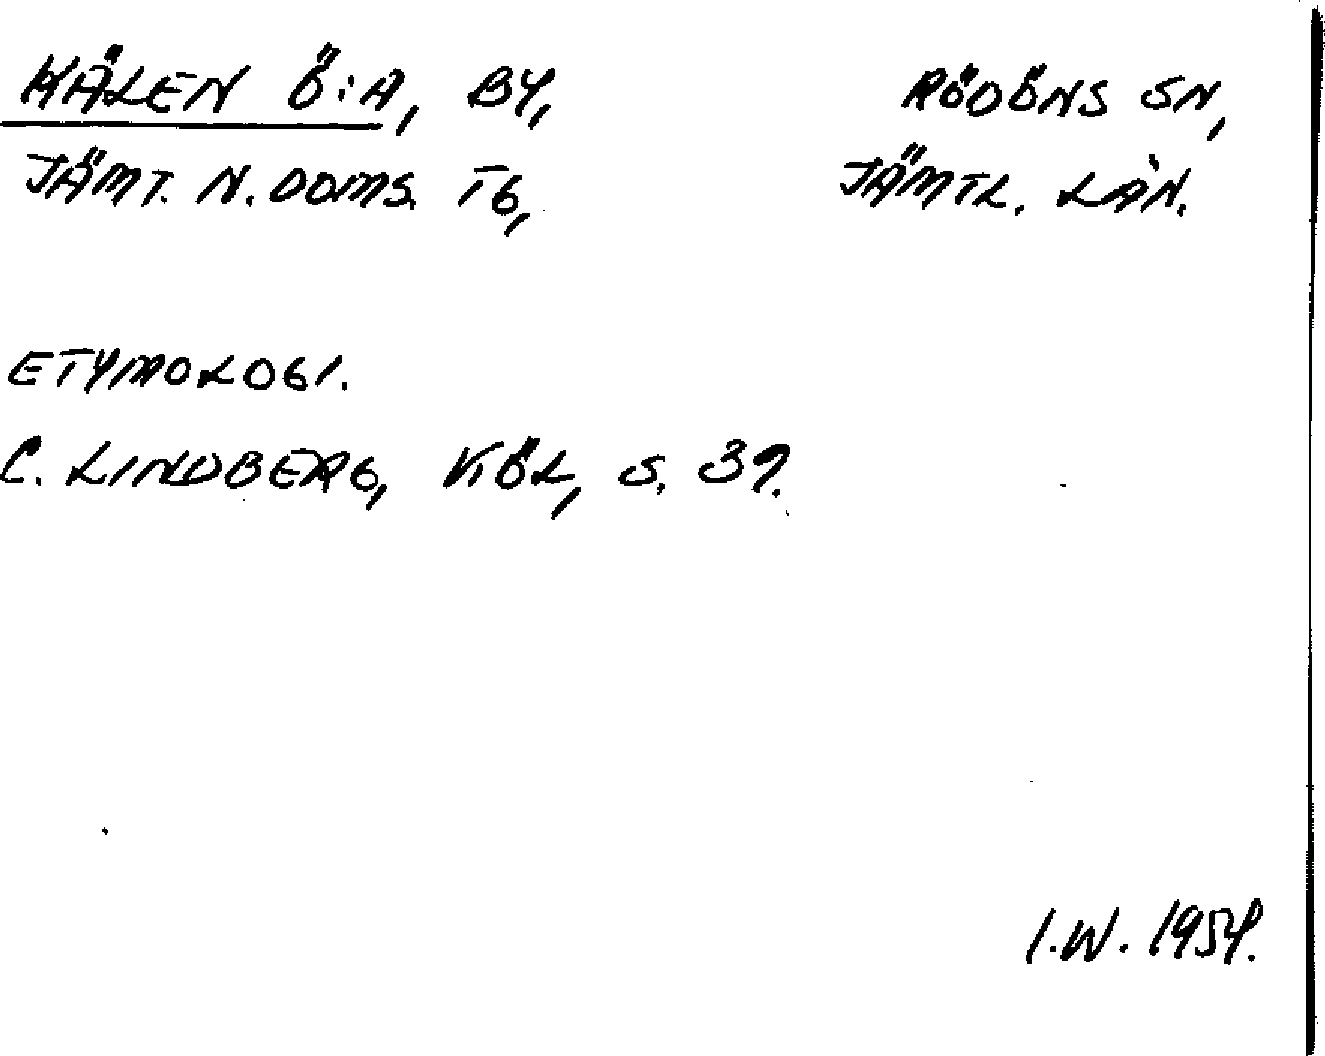 KÄLEN Ö:A, BY, RÖDÖNS SN,
JÄMT. N. DOMS. TG, JÄMTL. LÄN.
ETYMOLOGI.
C. LINDBERG, KÖL, S. 39.
I.W. 1954.